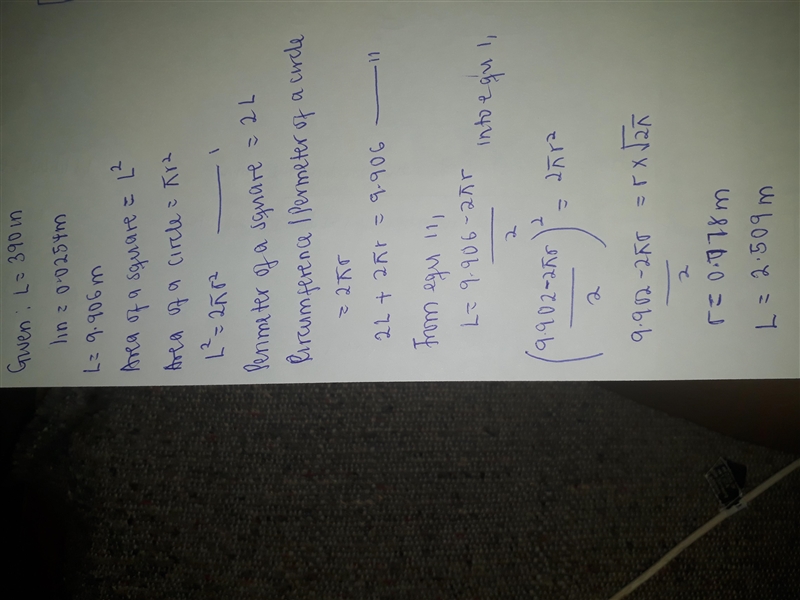 Given: L = 390in
1in = 0.0254m
L = 9.906m
Area of a square = L²
Area of a circle = πr²
L² = 2πr² —— 1
Perimeter of a square = 2L
Circumference/Perimeter of a circle
= 2πr
2L + 2πr = 9.906 —— 11
From equ 11,
L = 9.906 - 2πr / 2 into equ 1,
(9902 - 2πr / 2)² = 2πr²
9.902 - 2πr / 2 = r x √2π
r = 0.078m
L = 2.509m